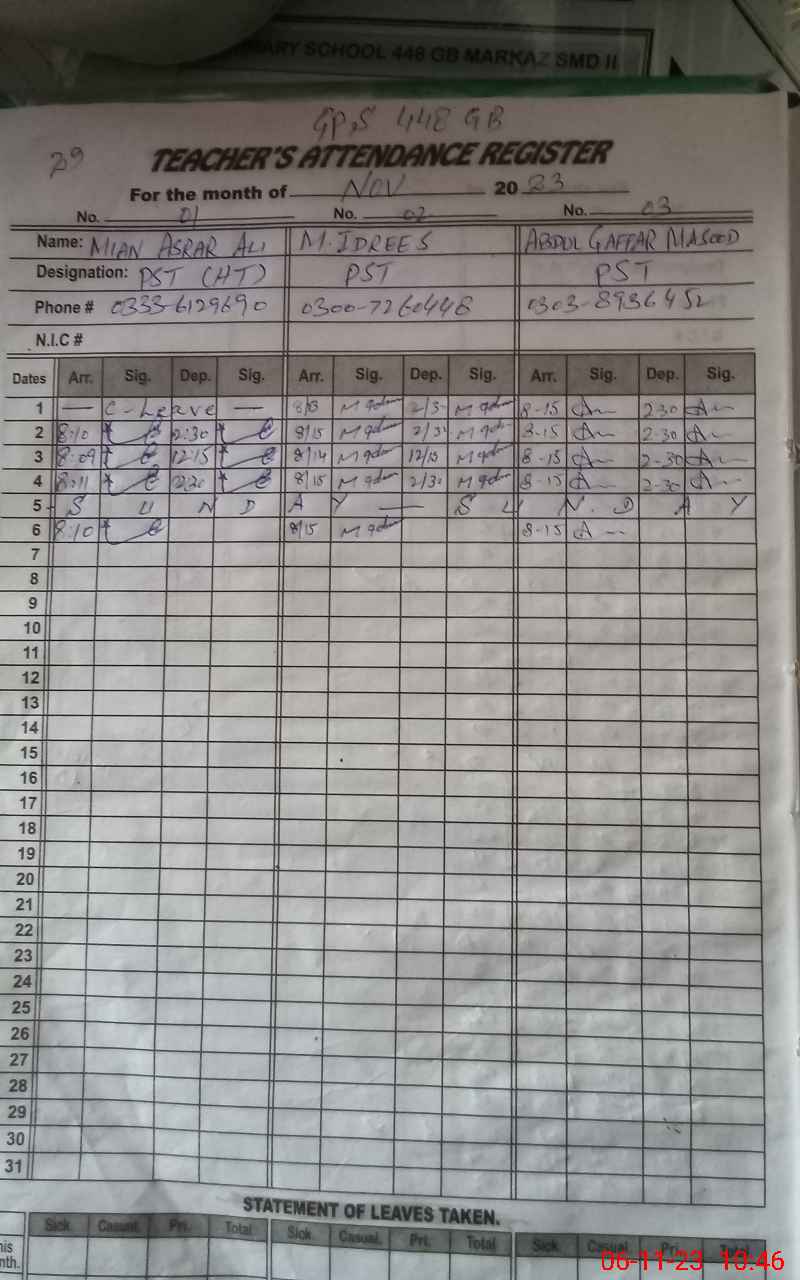 MARY SCHOOL 448 GB MARKAZ SMD II
GPS 448 GB
TEACHER'S ATTENDANCE REGISTER
For the month of NOV 20 23
No. 01 No. 02 No. 03
Name: MIAN ASRAR ALI M. IDREES ABDUL GAFFAR MASOOD
Designation: PST (HT) PST PST
Phone # 0333-6129690 0300-7260448 0303-8936452
N.I.C #
Dates Arr. Sig. Dep. Sig. Arr. Sig. Dep. Sig. Arr. Sig. Dep. Sig.
1 — C-Leave — 2/3 8-15 2.30
2 8:10 2:30 8/15 2/3 8-15 2-30
3 8:09 12:15 8/14 12/15 8-15 2-30
4 8:11 2:30 8/15 2/30 8-15 2-30
5 S U N D A Y — S U N D A Y
6 8:10 8/15 8-15
7
8
9
10
11
12
13
14
15
16
17
18
19
20
21
22
23
24
25
26
27
28
29
30
31
STATEMENT OF LEAVES TAKEN.
Sick. Casual. Pri. Total Sick. Casual. Pri. Total Sick. Casual. Pri. Total
his
nth.
06-11-23 10:46